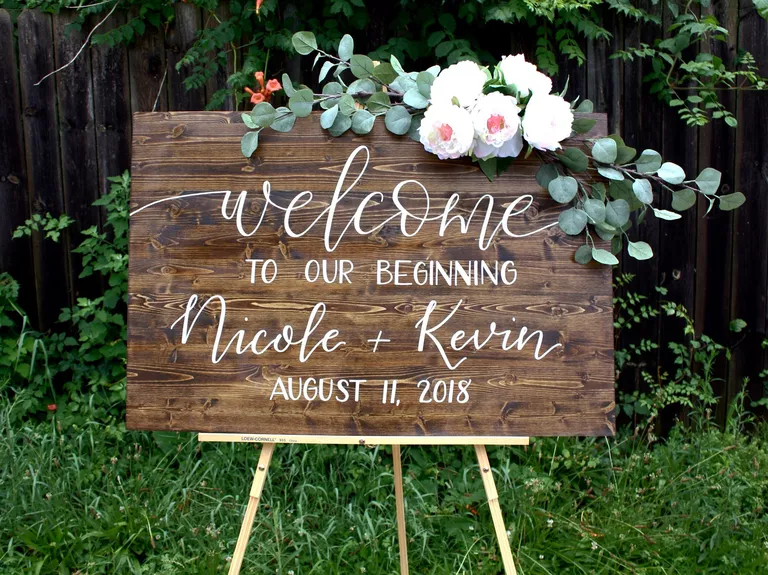 welcome
TO OUR BEGINNING
Nicole + Kevin
AUGUST 11, 2018
LOEW-CORNELL